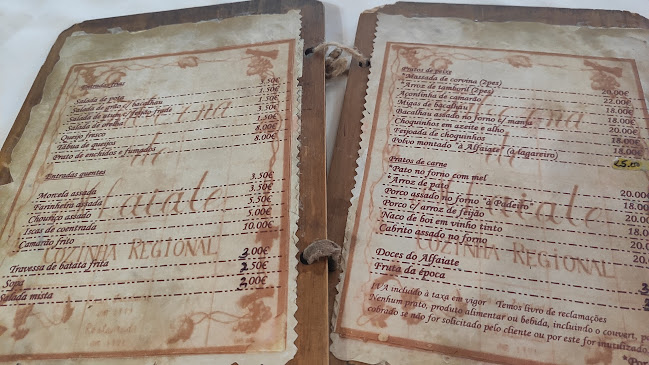 Entradas frias
Salada de polvo 3.50€
3.50€
Queijo fresco 1.50€
Tábua de queijos 8.00€
Prato de enchidos e fumados 8.00€
Entradas quentes
Morcela assada 3.50€
Farinheira assada 3.50€
Chouriço assado 5.50€
Iscas de coentrada 5.00€
Camarão frito 10.00€
Travessa de batata frita 2.00€
Sopa 2.50€
Salada mista 2.00€
COZINHA REGIONAL
Pratos de peixe
*Massada de corvina (2pes)
*Arroz de tamboril (2pes) 20.00€
Açontinha de bernardo 22.00€
Migas de bacalhau 18.00€
Bacalhau assado no forno c/ 18.00€
Choquinhos em azeite e alho 20.00€
Feijoada de choquinhos 18.00€
Polvo montado "à Alfaiate" (à lagareiro) 18.00€
Pratos de carne
*Pato no forno com mel
*Arroz de pato 20.00€
Porco assado no forno "à Padeiro" 18.00€
Porco c/ arroz de feijão 18.00€
Naco de boi em vinho tinto 18.00€
Cabrito assado no forno 20.00€
20.00€
Doces do Alfaiate
Fruta da época
Alfaiate
COZINHA REGIONAL
IVA incluído à taxa em vigor Temos livro de reclamações
Nenhum prato, produto alimentar ou bebida, incluindo o couvert, po
cobrado se não for solicitado pelo cliente ou por este for inutilizado